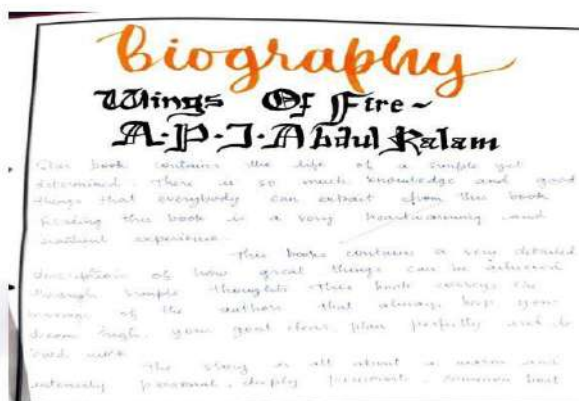 Biography
Wings Of Fire ~
A.P.J. Abdul Kalam
book contains the life of a simple yet
determined. There is so much knowledge and good
things that everybody can extract from this book
Reading this book is a very heartwarming and
experience.
This book contains a very detailed
description of how great things can be achieved
through simple thoughts this book conveys the
message of the author that always keep your
dream high, your goal clear, plan perfectly and do
work
The story is all about a warm and
intensely personal, deeply passionate, common